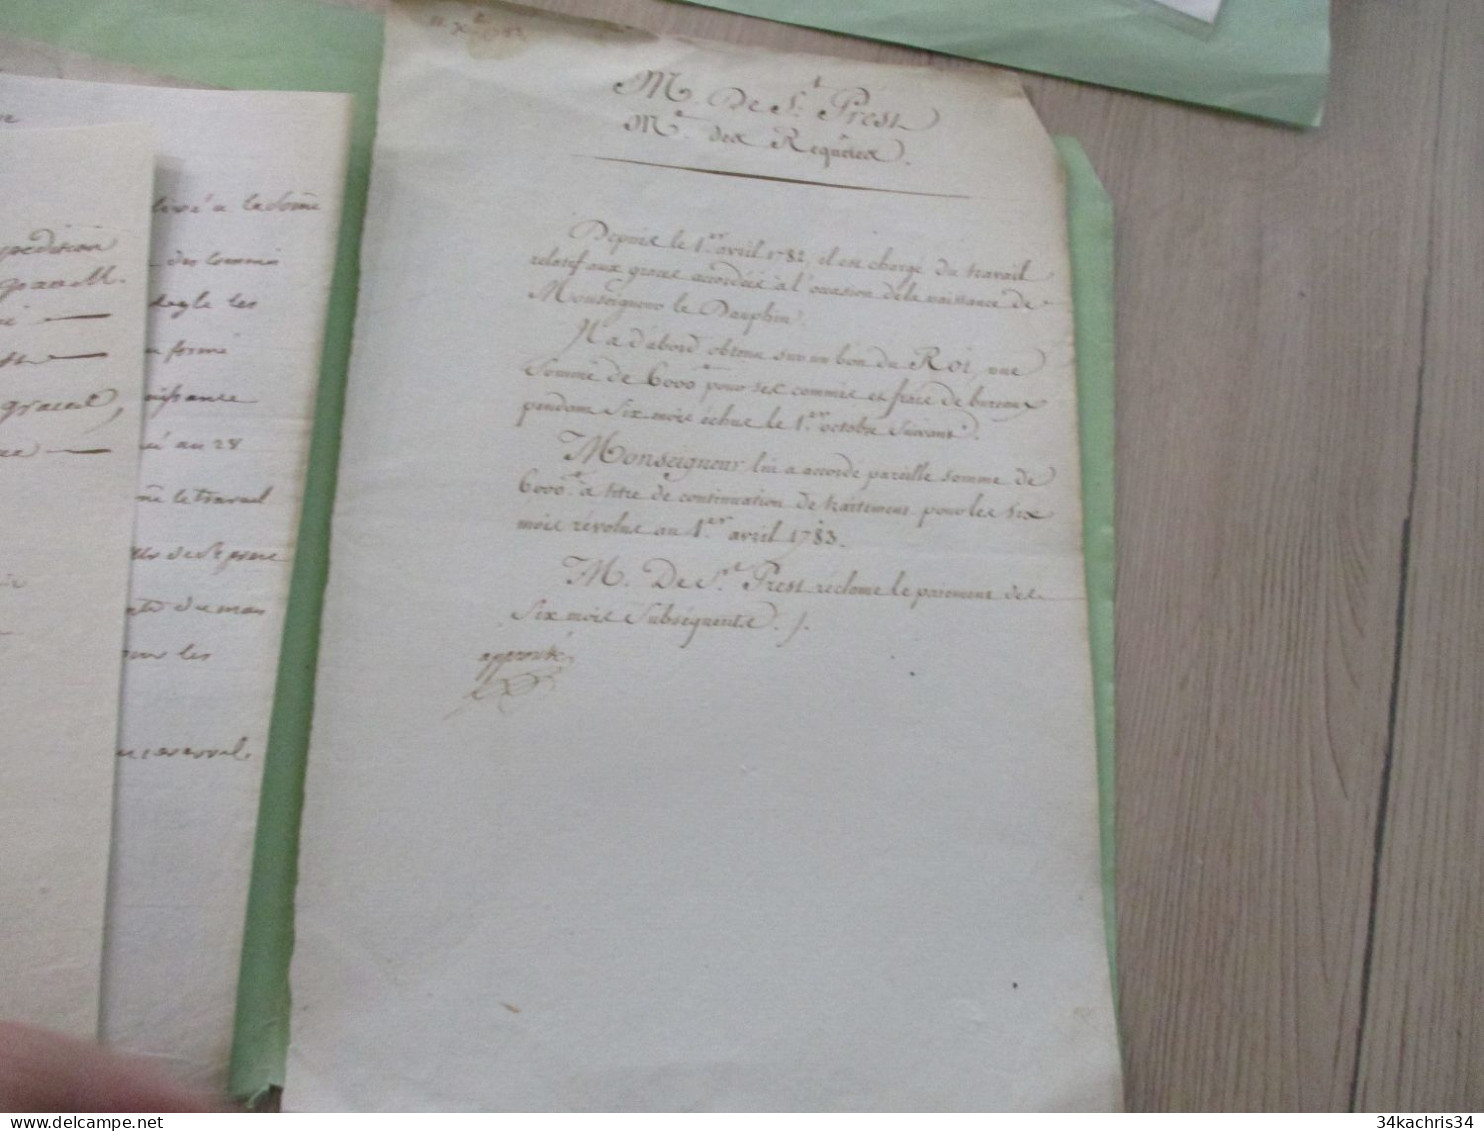 M. De S.t Prest
M.e des Requêtes.
Depuis le 1.er avril 1782, il est chargé du travail
relatif aux graces accordées à l'occasion de la naissance de
Monseigneur le Dauphin.
Il a d'abord obtenu sur un bon du Roi, une
Somme de 6000.tt pour ses commis et frais de bureau
pendant Six mois échus le 1.er octobre Suivant.
Monseigneur lui a accordé pareille somme de
6000.tt à titre de continuation de traitement pour les six
mois révolus au 1.er avril 1783.
M. De S.t Prest réclame le paiement des
Six mois Subséquents. /.
approuvé
livré a la Somme
des Commis
regle les
forme
naissance
au 28
le travail
du mois
pour les
expedition
travail,
34kachris34
delcampe.net